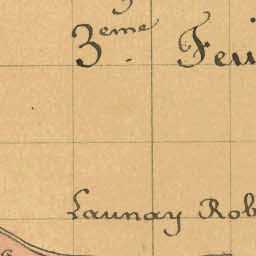 3eme Feui
Launay Rob